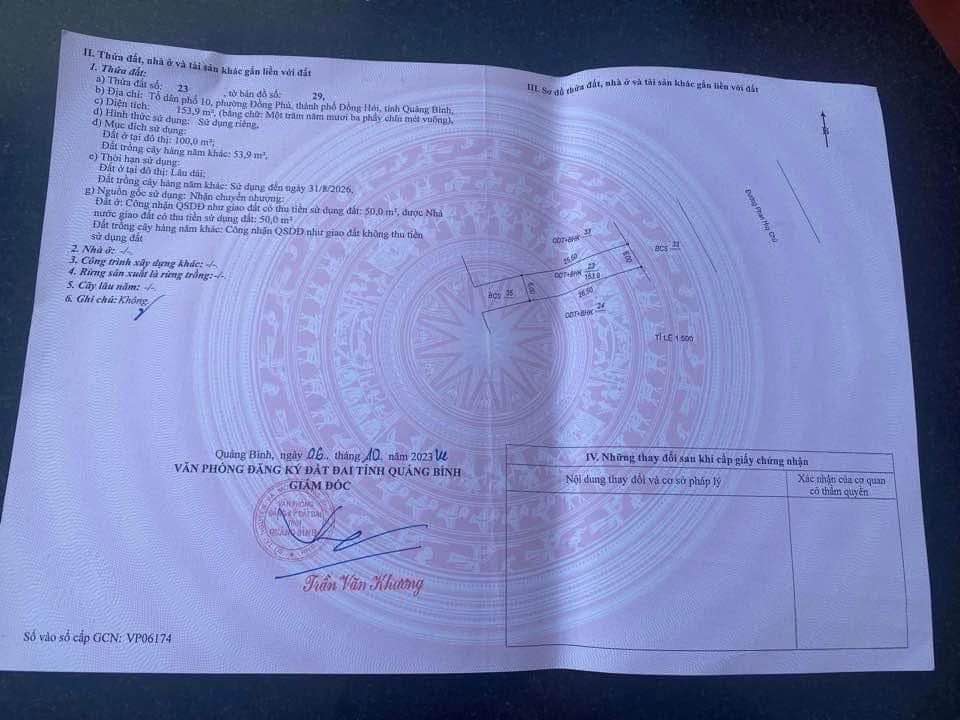 II. Thửa đất, nhà ở và tài sản khác gắn liền với đất
1. Thửa đất:
a) Thửa đất số: 23 , tờ bản đồ số: 29,
b) Địa chỉ: Tổ dân phố 10, phường Đồng Phú, thành phố Đồng Hới, tỉnh Quảng Bình,
c) Diện tích: 153,9 m², (bằng chữ: Một trăm năm mươi ba phẩy chín mét vuông),
d) Hình thức sử dụng: Sử dụng riêng,
đ) Mục đích sử dụng:
Đất ở tại đô thị: 100,0 m²;
Đất trồng cây hàng năm khác: 53,9 m²,
e) Thời hạn sử dụng:
Đất ở tại đô thị: Lâu dài;
Đất trồng cây hàng năm khác: Sử dụng đến ngày 31/8/2026,
g) Nguồn gốc sử dụng: Nhận chuyển nhượng:
Đất ở: Công nhận QSDĐ như giao đất có thu tiền sử dụng đất: 50,0 m², được Nhà
nước giao đất có thu tiền sử dụng đất: 50,0 m²
Đất trồng cây hàng năm khác: Công nhận QSDĐ như giao đất không thu tiền
sử dụng đất
2. Nhà ở: -/-.
3. Công trình xây dựng khác: -/-.
4. Rừng sản xuất là rừng trồng: -/-.
5. Cây lâu năm: -/-.
6. Ghi chú: Không
Quảng Bình, ngày 06 tháng 10 năm 2023
VĂN PHÒNG ĐĂNG KÝ ĐẤT ĐAI TỈNH QUẢNG BÌNH
GIÁM ĐỐC
VĂN PHÒNG
ĐĂNG KÝ ĐẤT ĐAI
TỈNH
QUẢNG BÌNH
Trần Văn Khương
Số vào sổ cấp GCN: VP06174
III. Sơ đồ thửa đất, nhà ở và tài sản khác gắn liền với đất
B
Đường Phan Huy Chú
ODT+BHK 33
BCS 33
25,50
6,00
ODT+BHK 23
153,9
BCS 35
6,00
26,50
ODT+BHK 24
TỈ LỆ 1:500
IV. Những thay đổi sau khi cấp giấy chứng nhận
Nội dung thay đổi và cơ sở pháp lý
Xác nhận của cơ quan
có thẩm quyền